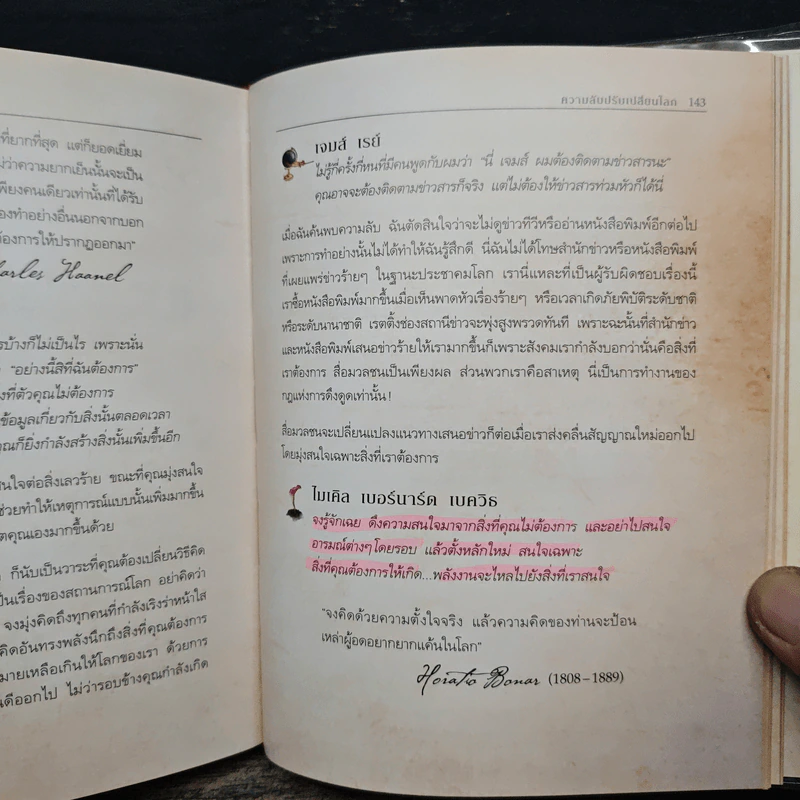 ที่ยากที่สุด แต่ก็ยอดเยี่ยม
ว่าความยากเย็นนั้นจะเป็น
พียงคนเดียวเท่านั้นที่ได้รับ
องทำอย่างอื่นนอกจากบอก
ต้องการให้ปรากฏออกมา"
Charles Haanel
รบ้างก็ไม่เป็นไร เพราะนั่น
"อย่างนี้สิที่ฉันต้องการ"
งที่ตัวคุณไม่ต้องการ
ข้อมูลเกี่ยวกับสิ่งนั้นตลอดเวลา
คุณก็ยิ่งกำลังสร้างสิ่งนั้นเพิ่มขึ้นอีก
นใจต่อสิ่งเลวร้าย ขณะที่คุณมุ่งสนใจ
ช่วยทำให้เหตุการณ์แบบนั้นเพิ่มมากขึ้น
ตคุณเองมากขึ้นด้วย
ก็นับเป็นวาระที่คุณต้องเปลี่ยนวิธีคิด
ป็นเรื่องของสถานการณ์โลก อย่าคิดว่า
จงมุ่งคิดถึงทุกคนที่กำลังเริงร่าหน้าใส
คิดอันทรงพลังนึกถึงสิ่งที่คุณต้องการ
มายเหลือเกินให้โลกของเรา ด้วยการ
นดีออกไป ไม่ว่ารอบข้างคุณกำลังเกิด
ความลับปรับเปลี่ยนโลก 143
เจมส์ เรย์
ไม่รู้กี่ครั้งกี่หนที่มีคนพูดกับผมว่า "นี่ เจมส์ ผมต้องติดตามข่าวสารนะ"
คุณอาจจะต้องติดตามข่าวสารก็จริง แต่ไม่ต้องให้ข่าวสารท่วมหัวก็ได้นี่
เมื่อฉันค้นพบความลับ ฉันตัดสินใจว่าจะไม่ดูข่าวทีวีหรืออ่านหนังสือพิมพ์อีกต่อไป
เพราะการทำอย่างนั้นไม่ได้ทำให้ฉันรู้สึกดี นี่ฉันไม่ได้โทษสำนักข่าวหรือหนังสือพิมพ์
ที่เผยแพร่ข่าวร้ายๆ ในฐานะประชาคมโลก เรานี่แหละที่เป็นผู้รับผิดชอบเรื่องนี้
เราซื้อหนังสือพิมพ์มากขึ้นเมื่อเห็นพาดหัวเรื่องร้ายๆ หรือเวลาเกิดภัยพิบัติระดับชาติ
หรือระดับนานาชาติ เรตติ้งช่องสถานีข่าวจะพุ่งสูงพรวดทันที เพราะฉะนั้นที่สำนักข่าว
และหนังสือพิมพ์เสนอข่าวร้ายให้เรามากขึ้นก็เพราะสังคมเรากำลังบอกว่านั่นคือสิ่งที่
เราต้องการ สื่อมวลชนเป็นเพียงผล ส่วนพวกเราคือสาเหตุ นี่เป็นการทำงานของ
กฎแห่งการดึงดูดเท่านั้น!
สื่อมวลชนจะเปลี่ยนแปลงแนวทางเสนอข่าวก็ต่อเมื่อเราส่งคลื่นสัญญาณใหม่ออกไป
โดยมุ่งสนใจเฉพาะสิ่งที่เราต้องการ
ไมเคิล เบอร์นาร์ด เบควิธ
จงรู้จักเฉย ดึงความสนใจมาจากสิ่งที่คุณไม่ต้องการ และอย่าไปสนใจ
อารมณ์ต่างๆโดยรอบ แล้วตั้งหลักใหม่ สนใจเฉพาะ
สิ่งที่คุณต้องการให้เกิด...พลังงานจะไหลไปยังสิ่งที่เราสนใจ
"จงคิดด้วยความตั้งใจจริง แล้วความคิดของท่านจะป้อน
เหล่าผู้อดอยากยากแค้นในโลก"
Horatio Bonar (1808-1889)